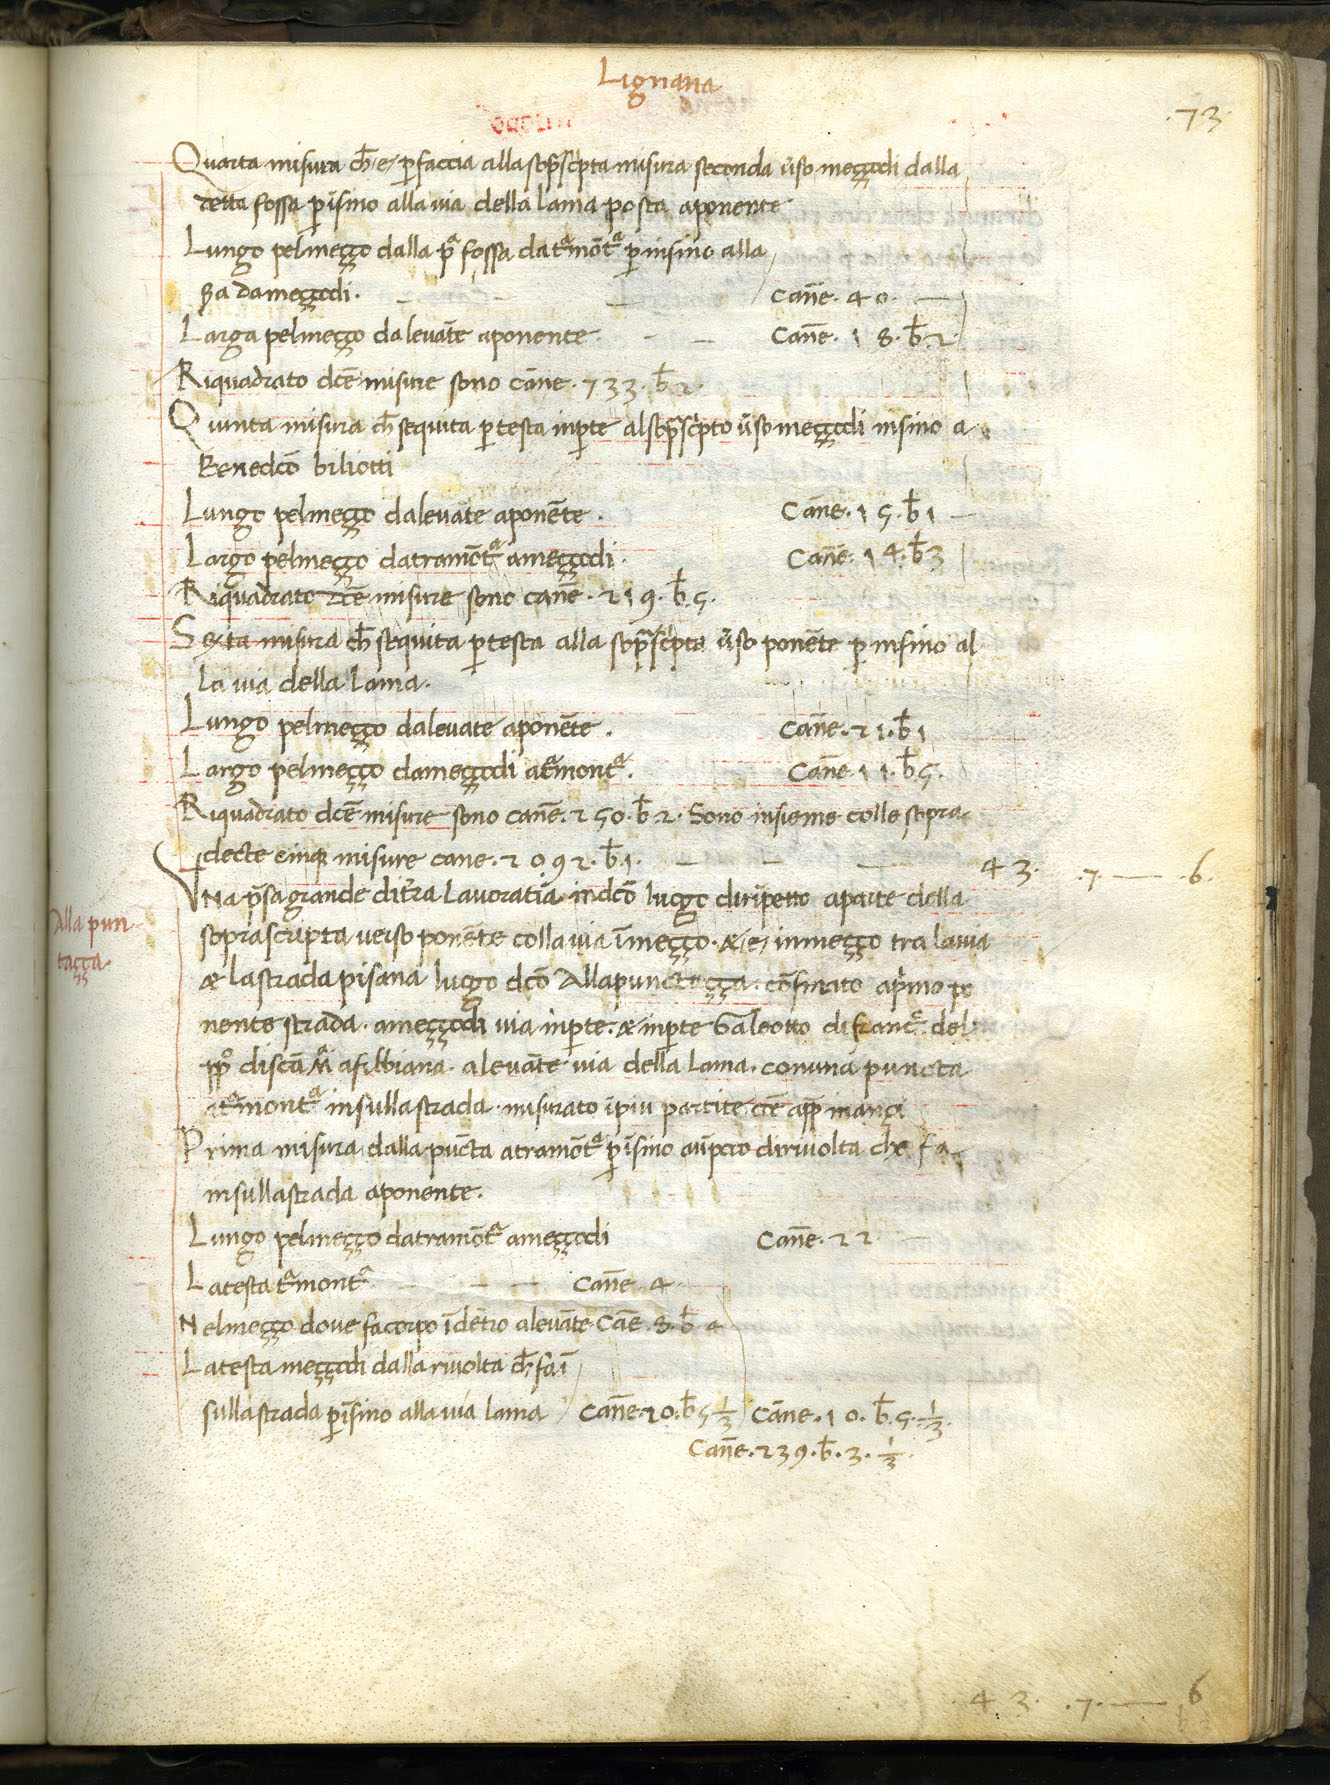 Lignana
.73.
Quarta misura ch̄ /e/ ꝑ faccia alla sop̄sc̄pta misura seconda ūso meççodi dalla
detta fossa ꝑ īsino alla via della lama posta aponente
Lungo pelmeçço dalla pª fossa datªmōtª ꝑ insino alla
ßa dameççodi. Cañe. 40.
Larga pelmeçço dalevāte aponente Cañe. 18. b̄. 2
Riquadrato dc̄e misure sono cāne. 733. b̄ 2.
Quinta misura ch̄ sequita ꝑ testa inꝑte al sop̄sc̄pto ūso meççodi insino a
Benedc̄o biliotti
Lungo pelmeçço dalevāte aponēte. Cāne. 15. b̄ 1
Largo pelmeçço datramōtª ameççodi. Cañe. 14. b̄ 3
Riquadrato dc̄e misure sono cañe. 219. b̄. 5.
Sexta misura ch̄ sequita ꝑ testa alla sop̄sc̄pta ūso ponēte ꝑ insino al
la via della lama.
Lungo pelmeçço dalevate aponēte. Cañe. 21. b̄ 1
Largo pelmeçço dameççodi atªmontª. Cañe. 11. b̄. 5.
Riquadrato dc̄e misure sono cañe. 250. b̄ 2. Sono insieme colle sopra
decte cinqꝫ misure cane. 2092. b̄. 1. 43. .7. — .6.
Una p̄sa grande dit̄ra lavoratīa in dc̄o luogo dirīpetto aparte della
Alla pun
soprascripta verso ponēte colla via īmeçço. & /e/ inmeçço tra la via
taçça.
& la strada pisana luogo dc̄o Alla punctaçça. cōfinato ap̄imo po
nente strada. ameççodi via inꝑte. & inꝑte Galeotto di francº. del
disc̄a Mª afibbiana. alevāte via della lama. conuna puncta
atªmontª insullastrada. misurato īpiu partite cōe app̄ inançi
Prima misura dalla pūcta atramōtª ꝑ īsino aūpcto dirivolta che fa
insullastrada aponente.
Lungo pelmeçço datramōtª ameççodi Cañe. 22
Latesta tªmontª Cañe. 4
Nelmeçço dove facorpo īdētro alevāte Cañe. 8. b̄ 4
Latesta meççodi dalla rivolta ch̄ fa ī
sullastrada ꝑ īsino alla via lama Cañe. 20. b̄ 5 1/3 Cāne. 10. b̄. 5. 1/3.
Cañe. 239. b̄. 3. 1/3.
43. .7. — 6